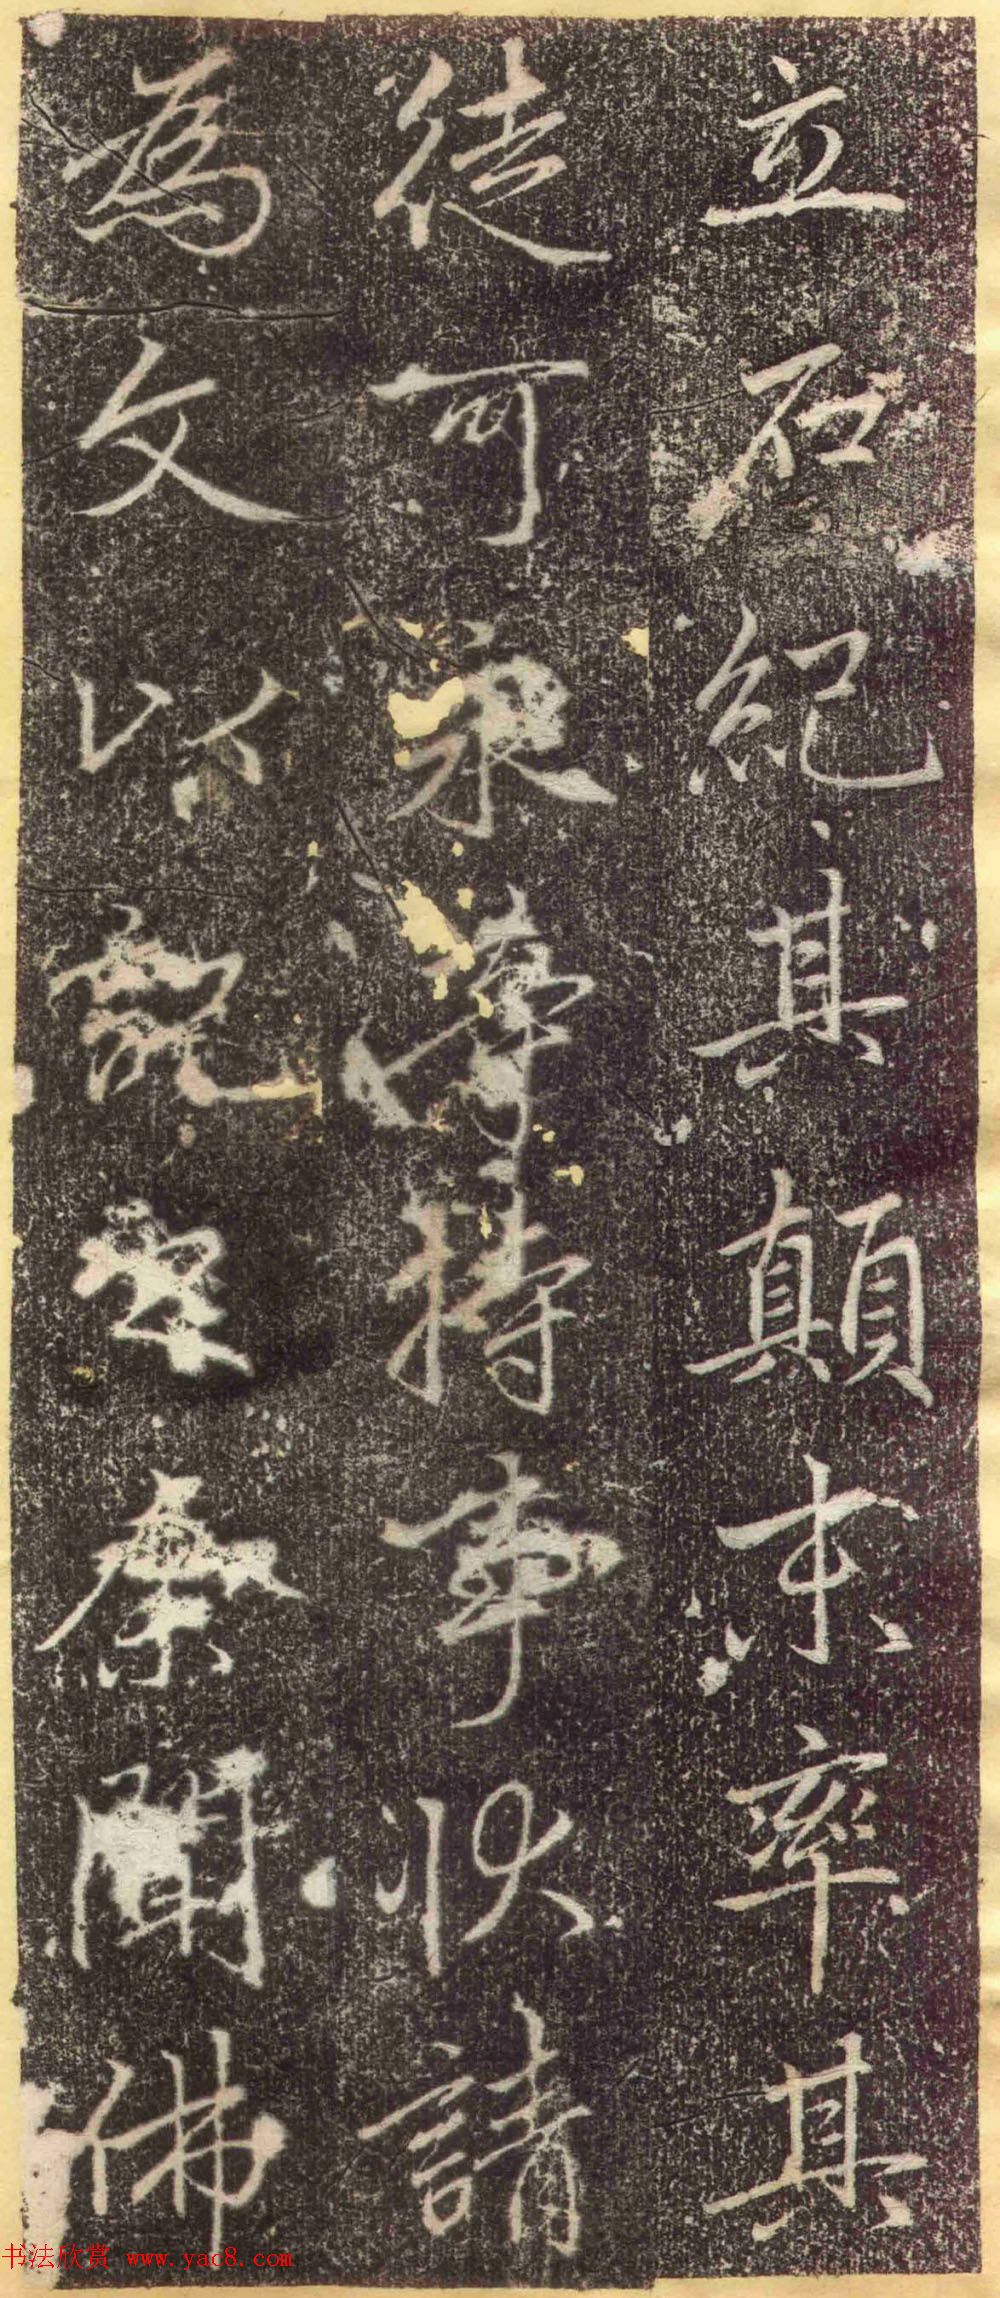 立石紀其顛末率其
徒可永傳持事状請
為文以記至余聞佛
书法欣赏 www.yac8.com